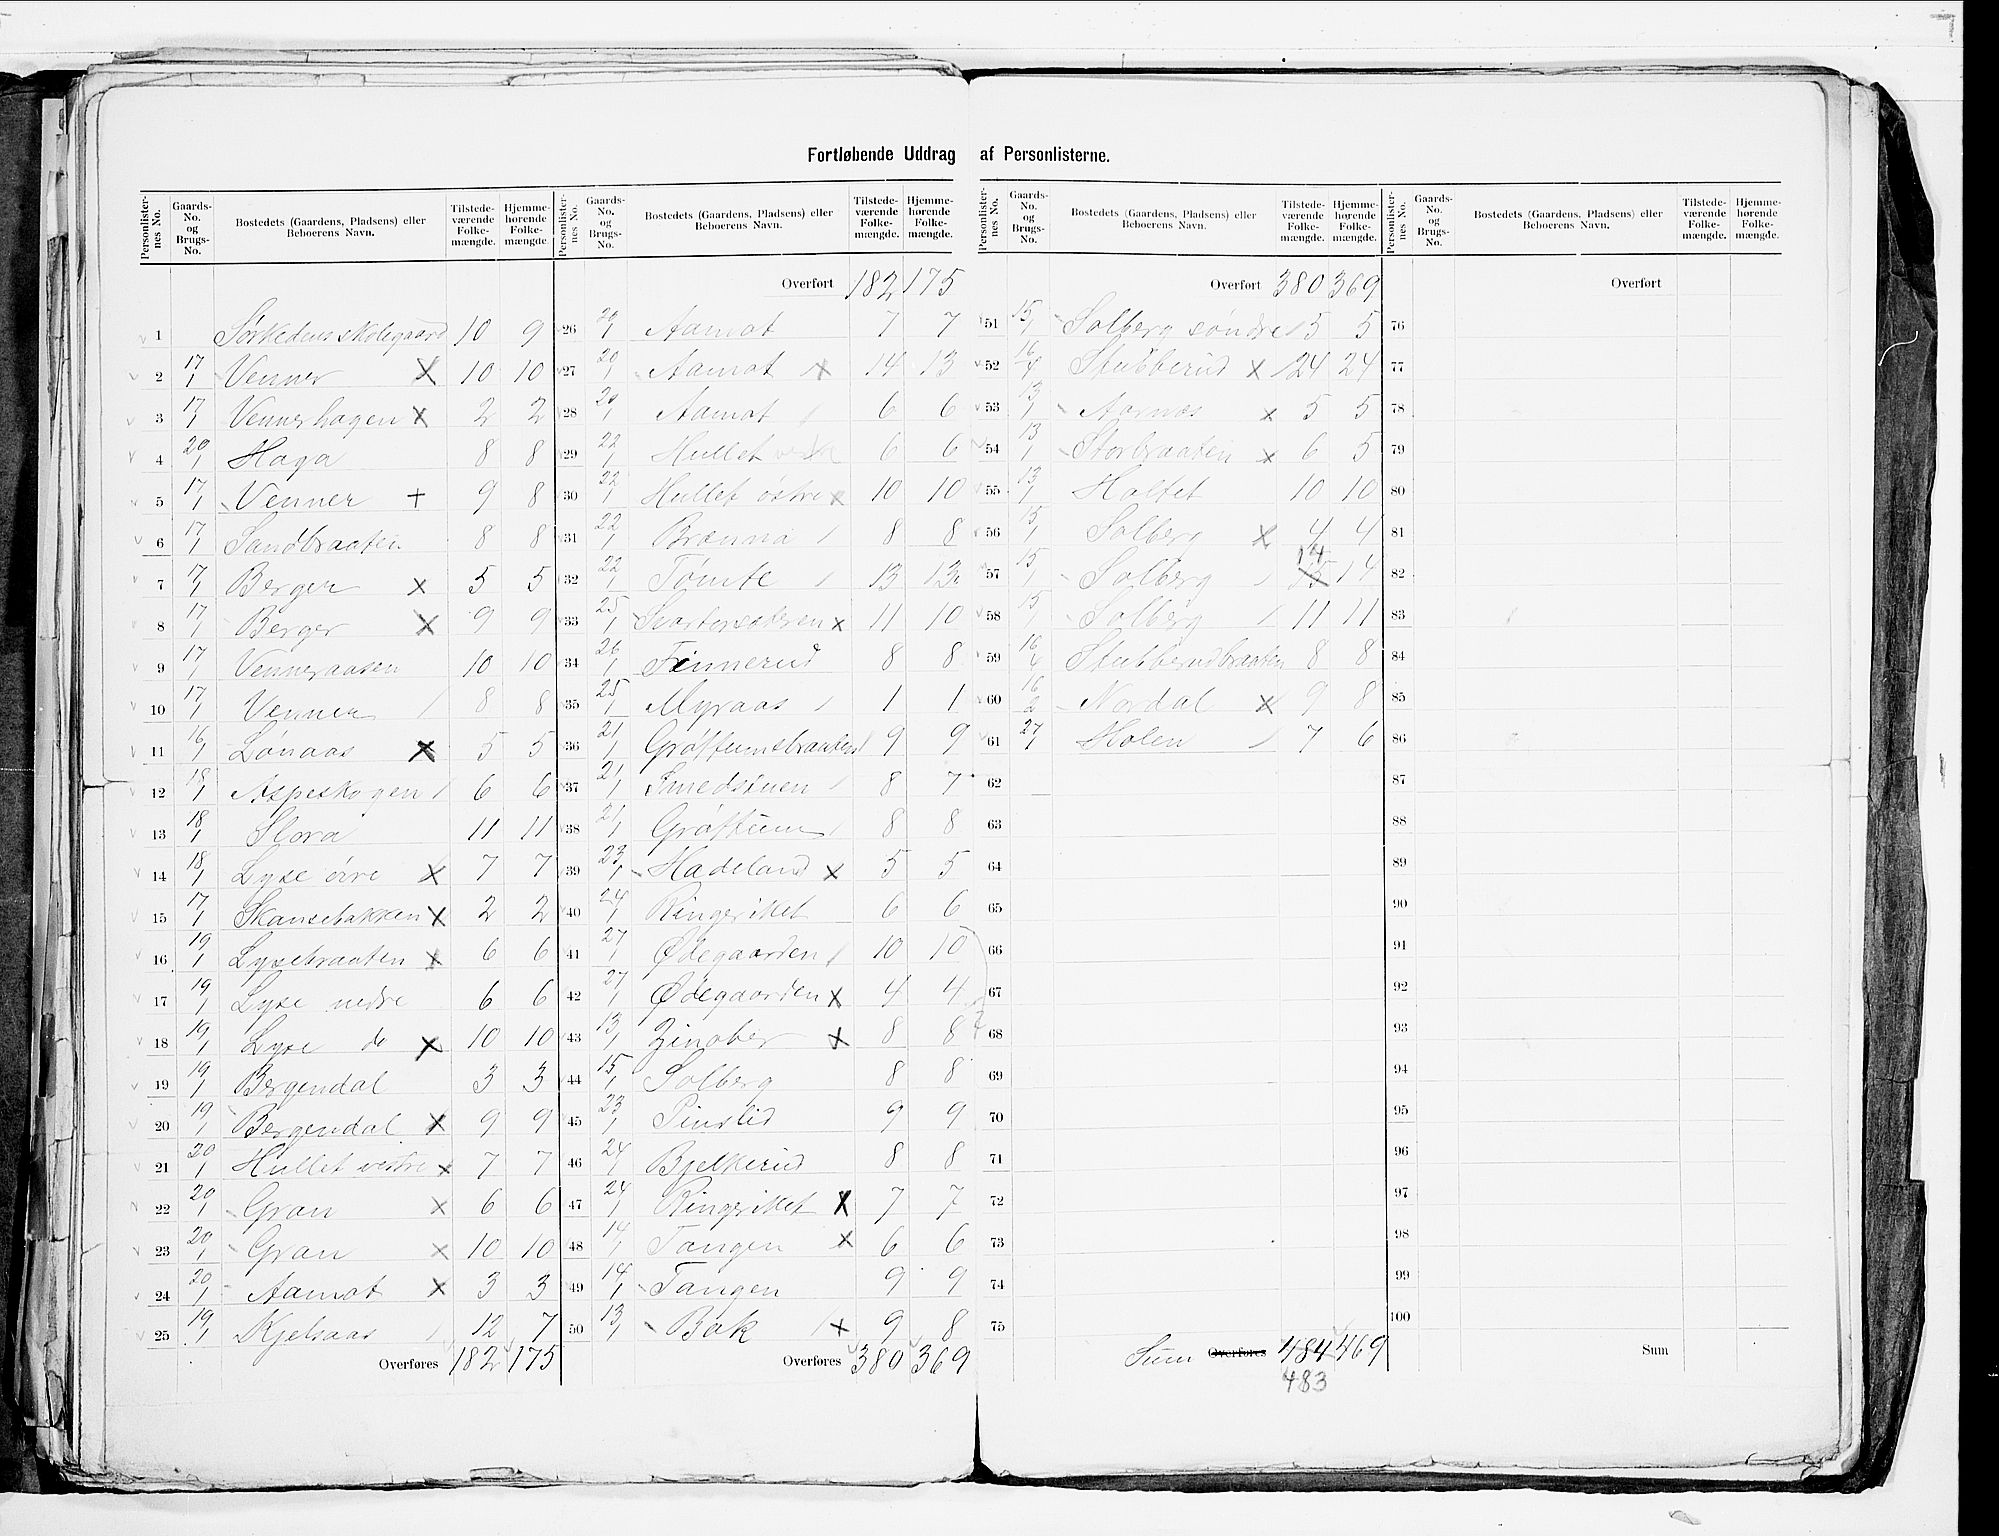 Fortløbende Uddrag af Personlisterne.
Personlister-nes No. | Gaards-No. og Brugs-No. | Bostedets (Gaardens, Pladsens) eller Beboerens Navn. | Tilstede-værende Folke-mængde. | Hjemme-hørende Folke-mængde.
1 Sørkedens skolegaard 10 9
2 17/1 Venner X 10 10
3 17/1 Vennerhagen X 2 2
4 20/1 Haga 8 8
5 17/1 Venner + 9 8
6 17/1 Sandbraaten 8 8
7 17/1 Berger X 5 5
8 17/1 Berger X 9 9
9 17/1 Venneraasen 10 10
10 17/1 Venner / 8 8
11 16/1 Lønaas X 5 5
12 18/1 Aspeskogen / 6 6
13 18/1 Slora 11 11
14 18/1 Lyse övre X 7 7
15 17/1 Skansebakken X 2 2
16 19/1 Lysebraaten X 6 6
17 19/1 Lyse nedre 6 6
18 19/1 Lyse do X 10 10
19 19/1 Bergendal 3 3
20 19/1 Bergendal X 9 9
21 20/1 Hullet vestre x 7 7
22 20/1 Gran X 6 6
23 20/1 Gran X 10 10
24 20/1 Aamot X 3 3
25 19/1 Kjelsaas / 12 7
Overføres 182 175
Personlister-nes No. | Gaards-No. og Brugs-No. | Bostedets (Gaardens, Pladsens) eller Beboerens Navn. | Tilstede-værende Folke-mængde. | Hjemme-hørende Folke-mængde.
Overført 182 175
26 20/1 Aamot 7 7
27 20/1 Aamot X 14 13
28 20/1 Aamot / 6 6
29 22/1 Hullet vestre 6 6
30 22/1 Hullet østre x 10 10
31 22/1 Brænna / 8 8
32 22/1 Tømte / 13 13
33 25/1 Svartorsæteren x 11 10
34 26/1 Finnerud 8 8
35 25/1 Myraas / 1 1
36 21/1 Grøttumsbraaten 9 9
37 21/1 Smedstuen / 8 7
38 21/1 Grøttum / 8 8
39 23/1 Hadeland X 5 5
40 24/1 Ringeriket 6 6
41 27/1 Ødegaarden / 10 10
42 27/1 Ødegaarden X 4 4
43 13/1 Zinober X 8 8
44 15/1 Solberg 8 8
45 23/1 Pinslid 9 9
46 24/1 Bjelkerud 8 8
47 24/1 Ringeriket X 7 7
48 14/1 Tangen X 6 6
49 14/1 Tangen 9 9
50 13/1 Bak / x 9 8
Overføres 380 369
Personlister-nes No. | Gaards-No. og Brugs-No. | Bostedets (Gaardens, Pladsens) eller Beboerens Navn. | Tilstede-værende Folke-mængde. | Hjemme-hørende Folke-mængde.
Overført 380 369
51 15/1 Solberg søndre / 5 5
52 16/4 Stubberud x 24 24
53 13/1 Aarnæs x 5 5
54 13/1 Storbraaten x 6 5
55 13/1 Holtet 10 10
56 15/1 Solberg X 4 4
57 15/1 Solberg / 15 14 14
58 15/1 Solberg / 11 11
59 16/4 Stubberudbraaten 8 8
60 16/2 Nordal X 9 8
61 27/1 Holen / 7 6
62
63
64
65
66
67
68
69
70
71
72
73
74
75
Sum Overføres 484 469
483
Personlister-nes No. | Gaards-No. og Brugs-No. | Bostedets (Gaardens, Pladsens) eller Beboerens Navn. | Tilstede-værende Folke-mængde. | Hjemme-hørende Folke-mængde.
Overført
76
77
78
79
80
81
82
83
84
85
86
87
88
89
90
91
92
93
94
95
96
97
98
99
100
Sum